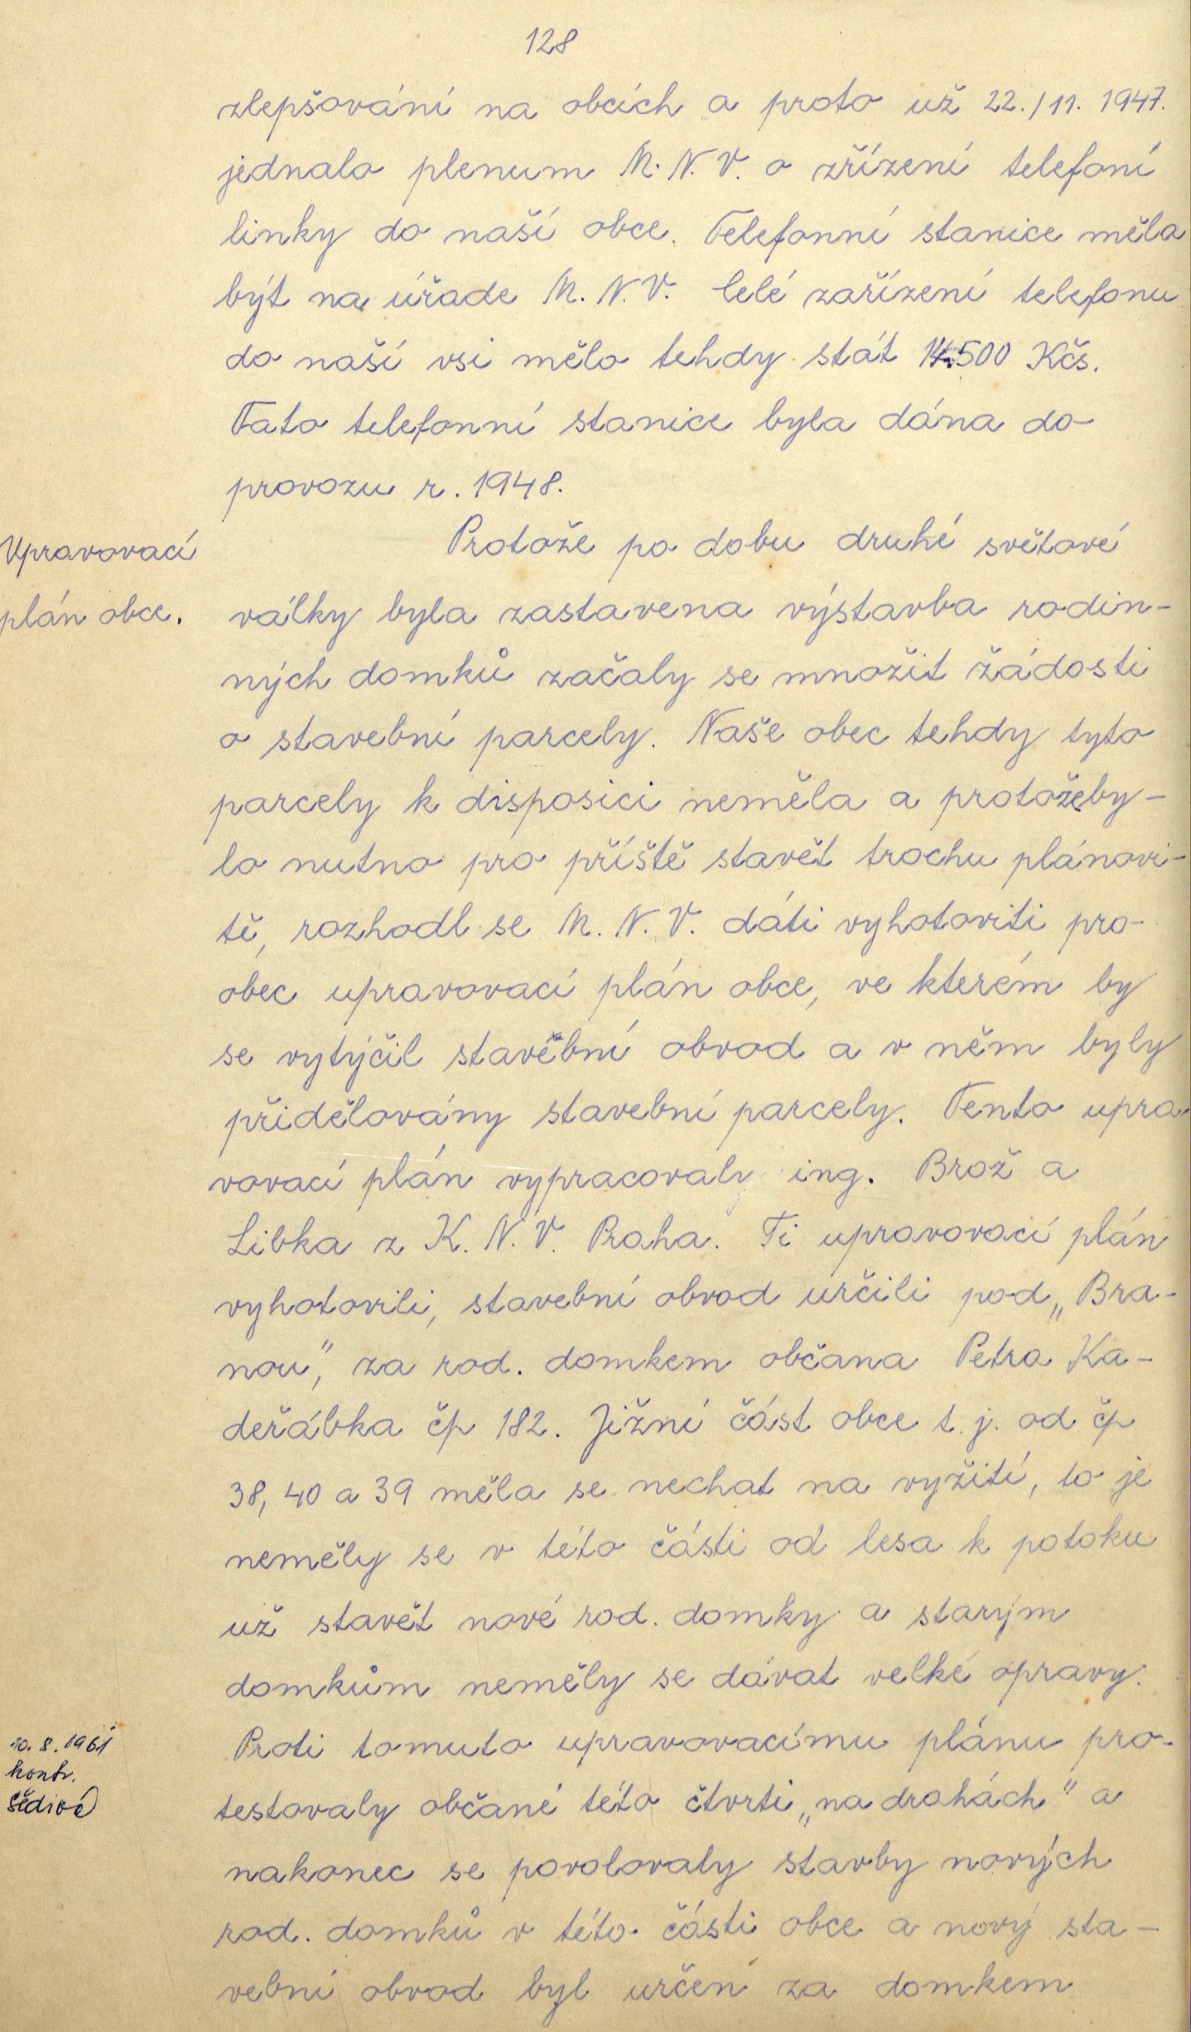 128
zlepšování na obcích a proto už 22./11. 1947.
jednalo plenum M. N. V. o zřízení telefoní
linky do naší obce. Telefonní stanice měla
být na úřade M. N. V. Celé zařízení telefonu
do naší vsi mělo tehdy stát 14.500 Kčs.
Tato telefonní stanice byla dána do
provozu r. 1948.
Upravovací
plán obce.
Protože po dobu druhé světové
války byla zastavena výstavba rodin-
ných domků začaly se množit žádosti
o stavební parcely. Naše obec tehdy tyto
parcely k disposici neměla a protože by-
lo nutno pro příště stavět trochu plánovi-
tě, rozhodl se M. N. V. dáti vyhotoviti pro
obec upravovací plán obce, ve kterém by
se vytýčil stavěbní obvod a v něm byly
přidělovány stavební parcely. Tento upra
vovací plán vypracovaly ing. Brož a
Libka z K. N. V. Praha. Ti upravovací plán
vyhotovili, stavební obvod určili pod „Bra-
nou“, za rod. domkem občana Petra Ka-
deřábka čp 182. Jižní část obce t. j. od čp
38, 40 a 39 měla se nechat na vyžití, to je
neměly se v této části od lesa k potoku
už stavět nové rod. domky a starým
domkům neměly se dávat velké opravy.
Proti tomuto upravovacímu plánu pro-
testovaly občané této čtvrti „na drahách“ a
nakonec se povolovaly stavby nových
rod. domků v této části obce a nový sta-
vební obvod byl určen za domkem
10. 8. 1961
kontr.
Šedivá